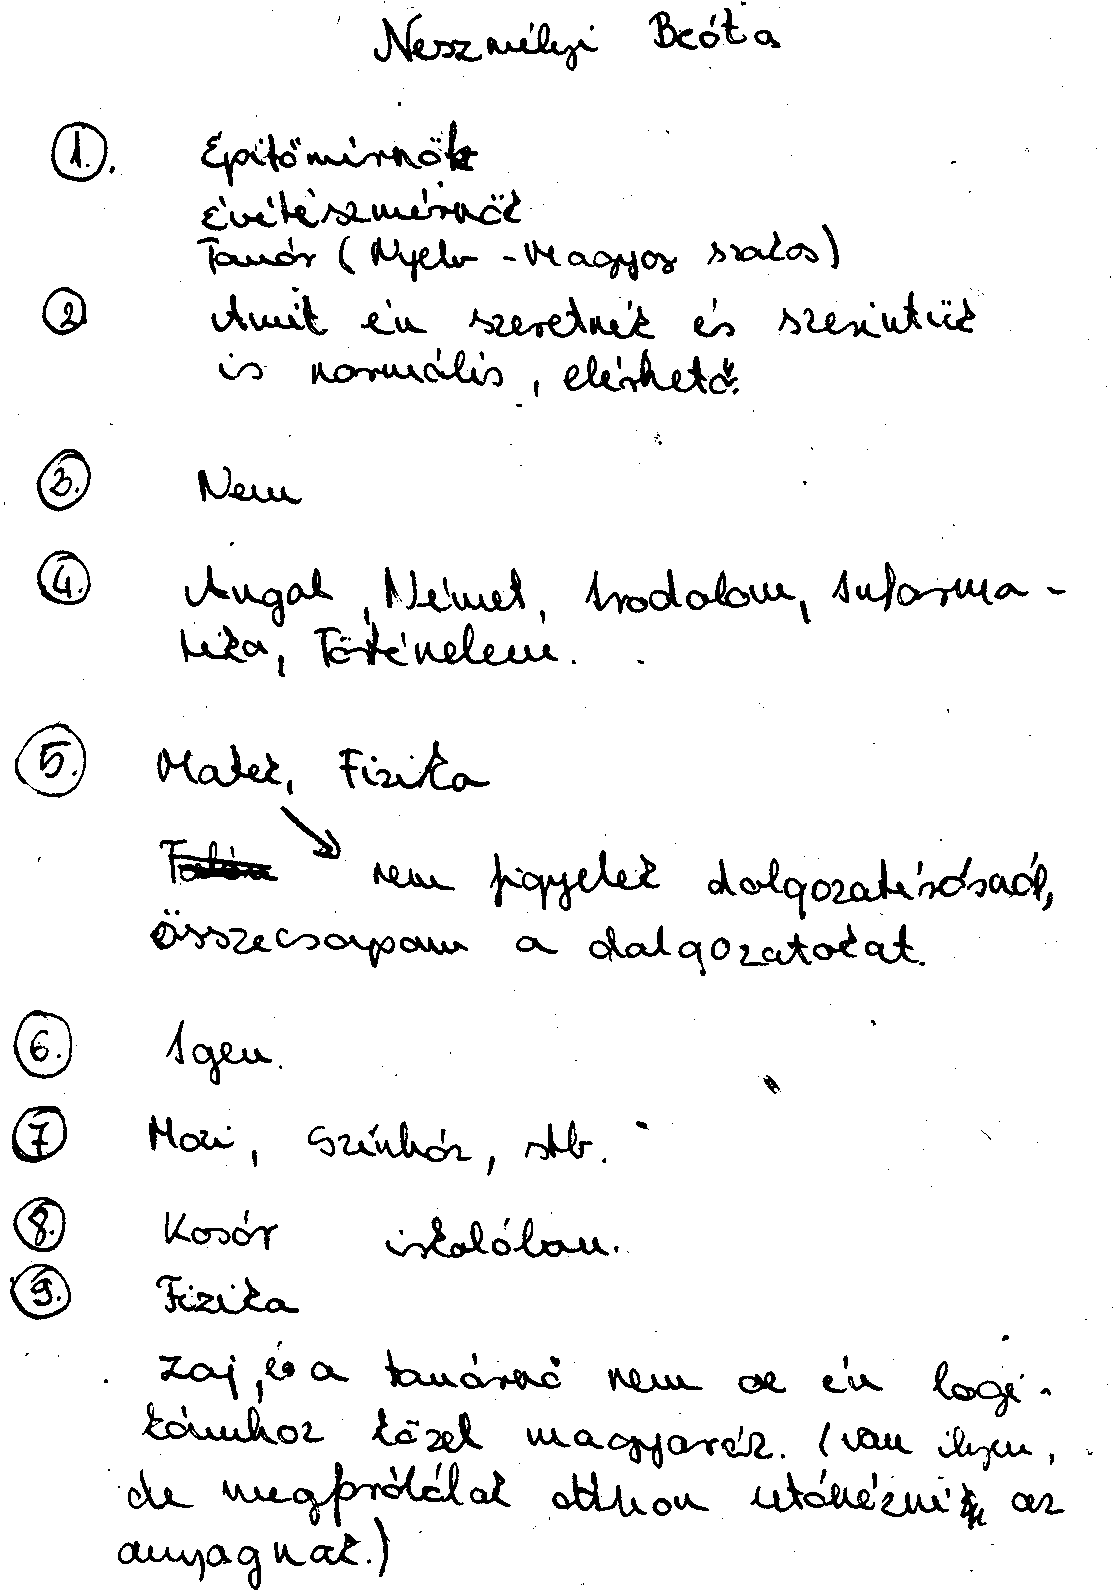 Neszmélyi Beáta
1. Építőmérnök
építészmérnök
Tanár (Nyelv - Magyar szakos)
2 Amit én szeretnék és szerintük
is normális, elérhető.
3. Nem
4. Angol, Német, Irodalom, Informa-
tika, Történelem.
5. Matek, Fizika
Talán nem figyelek dolgozatírásnál,
összecsapom a dolgozatokat.
6. Igen.
7 Mozi, Színház, stb.
8. Kosár iskolában.
9. Fizika
Zaj, és a tanárnő nem az én logi-
kámhoz közel magyaráz. (van ilyen,
de megpróbálok otthon utánézni az
anyagnak.)